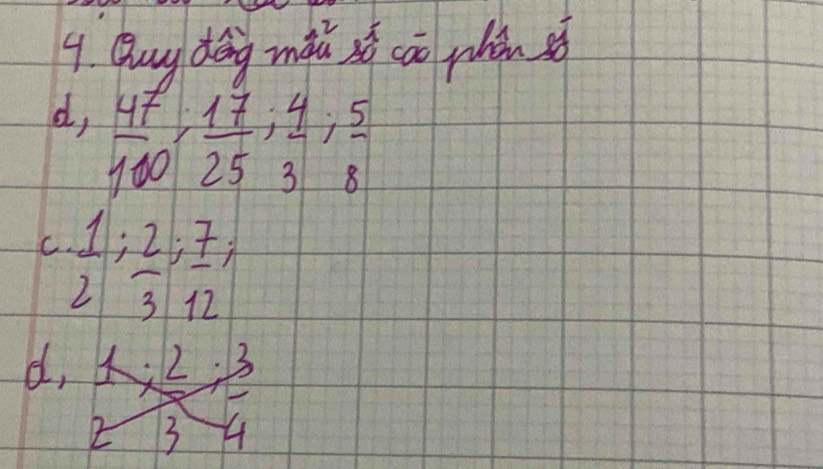 4. Quy đồng mẫu số các phân số
d, 47/100 ; 17/25 ; 4/3 ; 5/8
c. 1/2 ; 2/3 ; 7/12 ;
d, 1/2 ; 2/3 ; 3/4